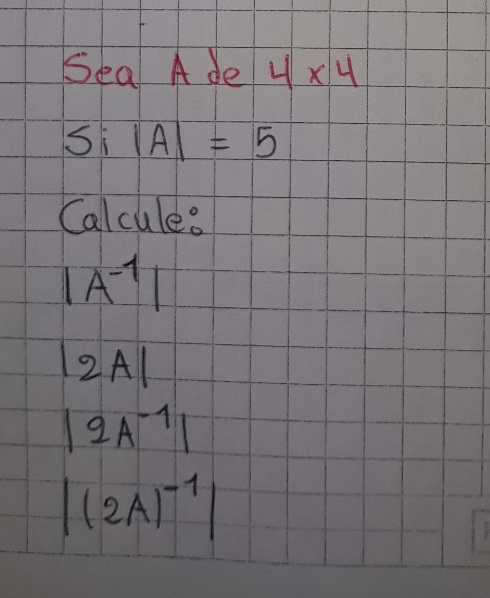 Sea A de 4 x 4
Si |A| = 5
Calcule:
|A⁻¹|
|2A|
|2A⁻¹|
|(2A)⁻¹|